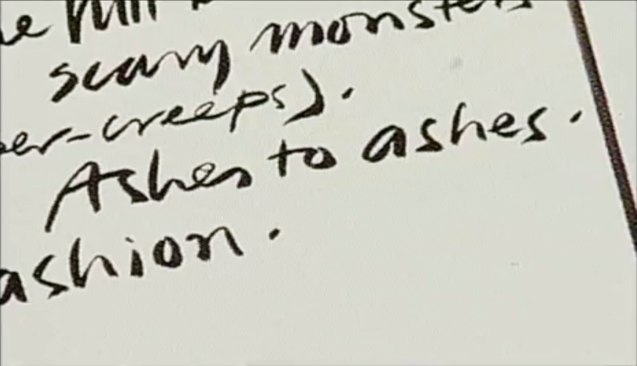 scary monsters
er-creeps).
Ashes to ashes.
ashion.